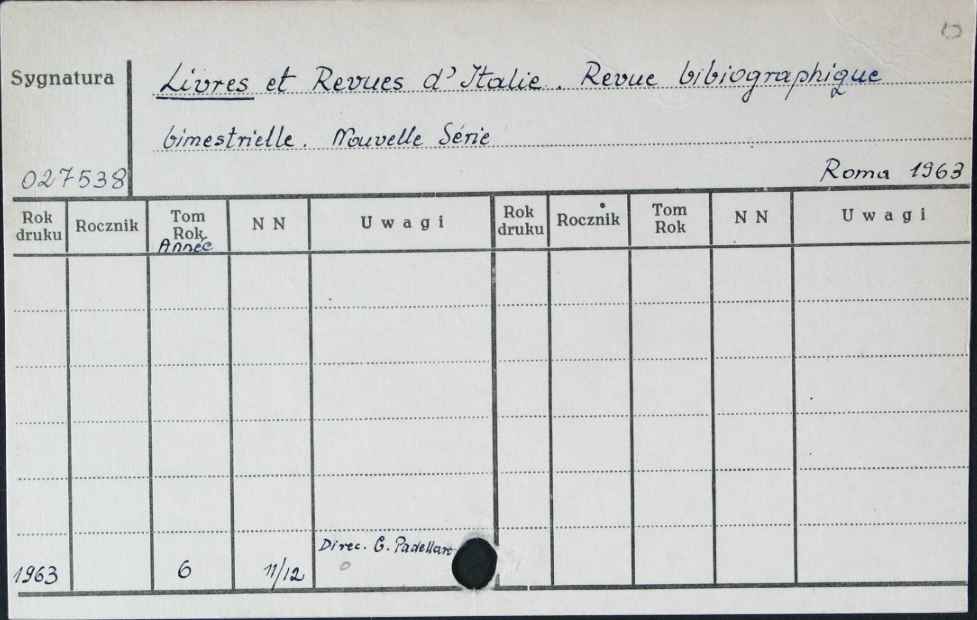 Sygnatura
Livres et Revues d'Italie. Revue bibiographique
bimestrielle. Nouvelle Série
027538
Roma 1963
Rok druku Rocznik Tom Rok Année N N Uwagi Rok druku Rocznik Tom Rok N N Uwagi
Direc. G. Padellaro
1963 6 11/12